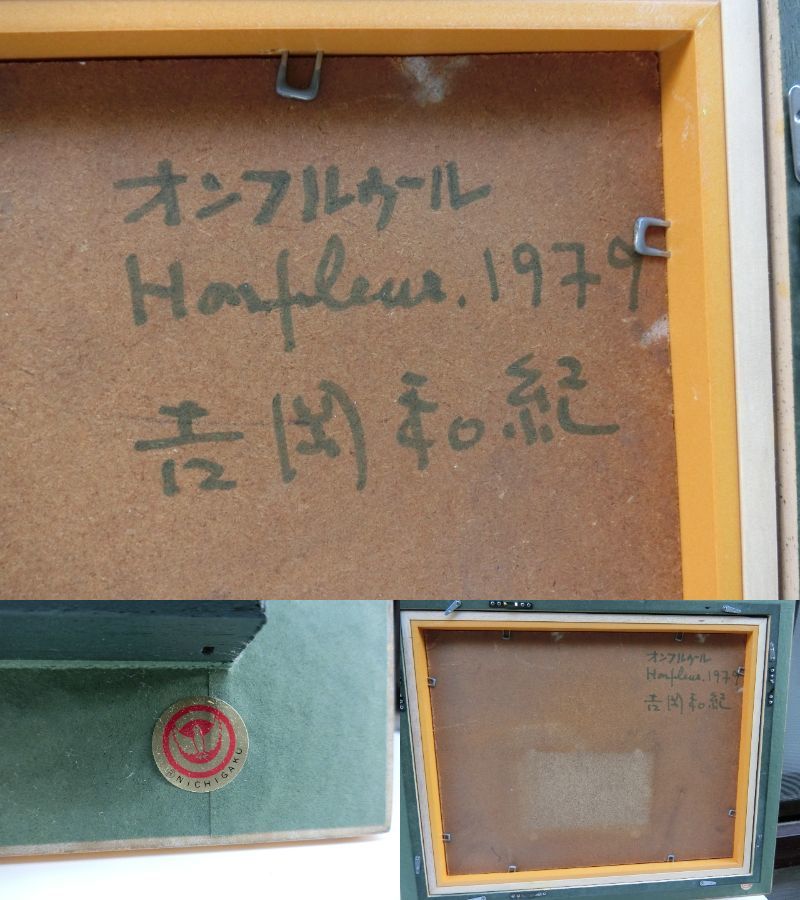 オンフルウール
Honfleur. 1979
吉岡和紀
NICHIGAKU
オンフルウール
Honfleur. 1979
吉岡和紀